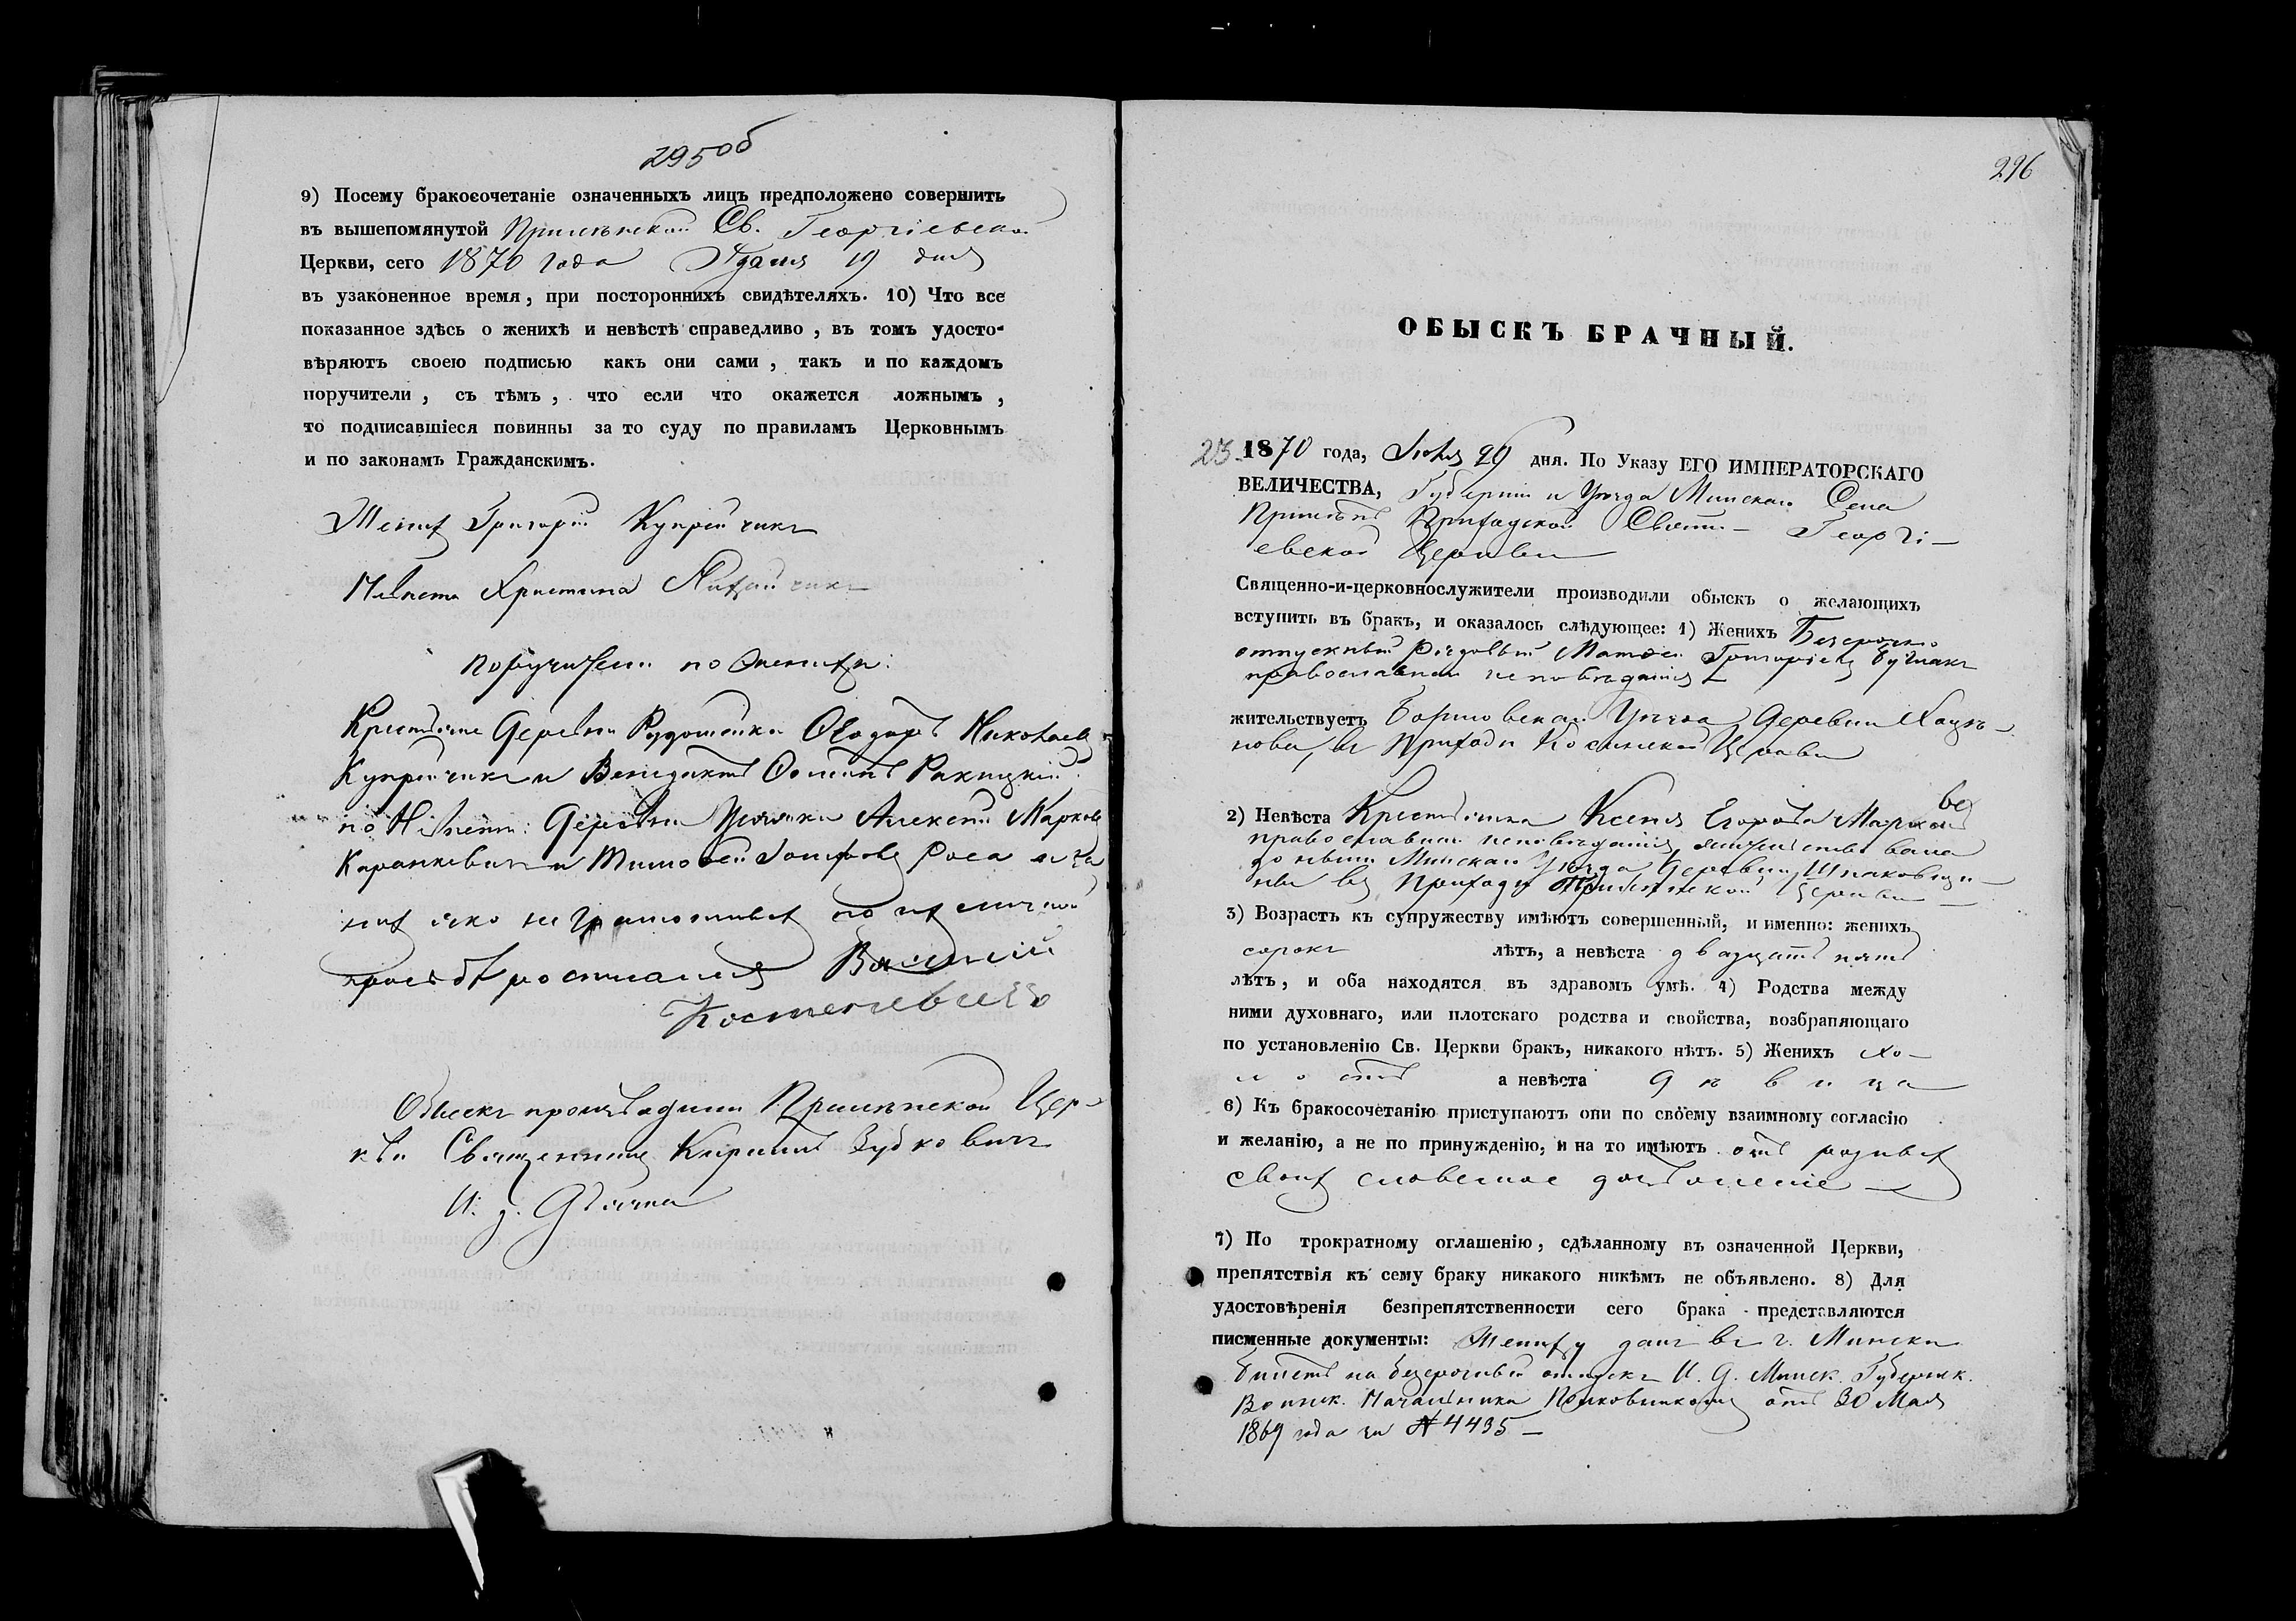 295об
9) Посему бракосочетаніе означенныхъ лицъ предположено совершить
въ вышепомянутой Прилѣпской Св. Георгіевской
Церкви, сего 1870 года 19 дня
въ узаконенное время, при постороннихъ свидѣтеляхъ. 10) Что все
показанное здѣсь о женихѣ и невѣстѣ справедливо, въ томъ удосто-
вѣряютъ своею подписью какъ они сами, такъ и по каждомъ
поручители, съ тѣмъ, что если что окажется ложнымъ,
то подписавшіеся повинны за то суду по правиламъ Церковнымъ
и по законамъ Гражданскимъ.
Женихъ Григорій Купрейчикъ
Невѣста Христина
поручители по женихѣ:
Крестьяне Деревни Рудошейки Ѳеодоръ Николаевъ
Купрейчикъ и Венедиктъ Осиповъ Ракицкій
по Невѣстѣ: Деревни Усяжи Алексѣй Марковъ
Каранкевичъ и Тимофей а за
нихъ яко неграмотныхъ по ихъ личной
прозьбѣ росписался Василій
Костеневичъ
Обыскъ производили Прилѣпской Цер-
кви Священникъ Кириллъ Зубковичъ
И. д. Дьячка
296
ОБЫСКЪ БРАЧНЫЙ.
23 1870 года, Іюля 29 дня. По Указу ЕГО ИМПЕРАТОРСКАГО
ВЕЛИЧЕСТВА, Губерніи и Уѣзда Минскаго Села
Прилѣпъ Приходской Свято- Георгі-
евской Церкви
Священно-и-церковнослужители производили обыскъ о желающихъ
вступить въ бракъ, и оказалось слѣдующее: 1) Женихъ Безсрочно
отпускный Рядовый Матѳей Григоріевъ
православнаго исповѣданія
жительствуетъ Борисовскаго Уѣзда Деревни
въ Приходѣ Косинской Церкви
2) Невѣста Крестьянка Ксенія Егорова
православнаго исповѣданія, жительствовала
до нынѣ Минскаго Уѣзда Деревни Шпаковщи-
ны въ Приходѣ Прилѣпской Церкви
3) Возрастъ къ супружеству имѣютъ совершенный, и именно: женихъ
сорокъ лѣтъ, а невѣста двадцать пять
лѣтъ, и оба находятся въ здравомъ умѣ. 4) Родства между
ними духовнаго, или плотскаго родства и свойства, возбраняющаго
по установленію Св. Церкви бракъ, никакого нѣтъ. 5) Женихъ хо-
лостъ а невѣста дѣвица
6) Къ бракосочетанію приступаютъ они по своему взаимному согласію
и желанію, а не по принужденію, и на то имѣютъ отъ родныхъ
своихъ словесное дозволеніе
7) По трократному оглашенію, сдѣланному въ означенной Церкви,
препятствія къ сему браку никакого никѣмъ не объявлено. 8) Для
удостовѣренія безпрепятственности сего брака представляются
писменные документы: Жениху данъ въ г. Минскѣ
билетъ на безсрочный отпускъ И. Д. Минск. Губернск.
Воинск. Начальника Полковникомъ отъ 30 Мая
1869 года за № 4435